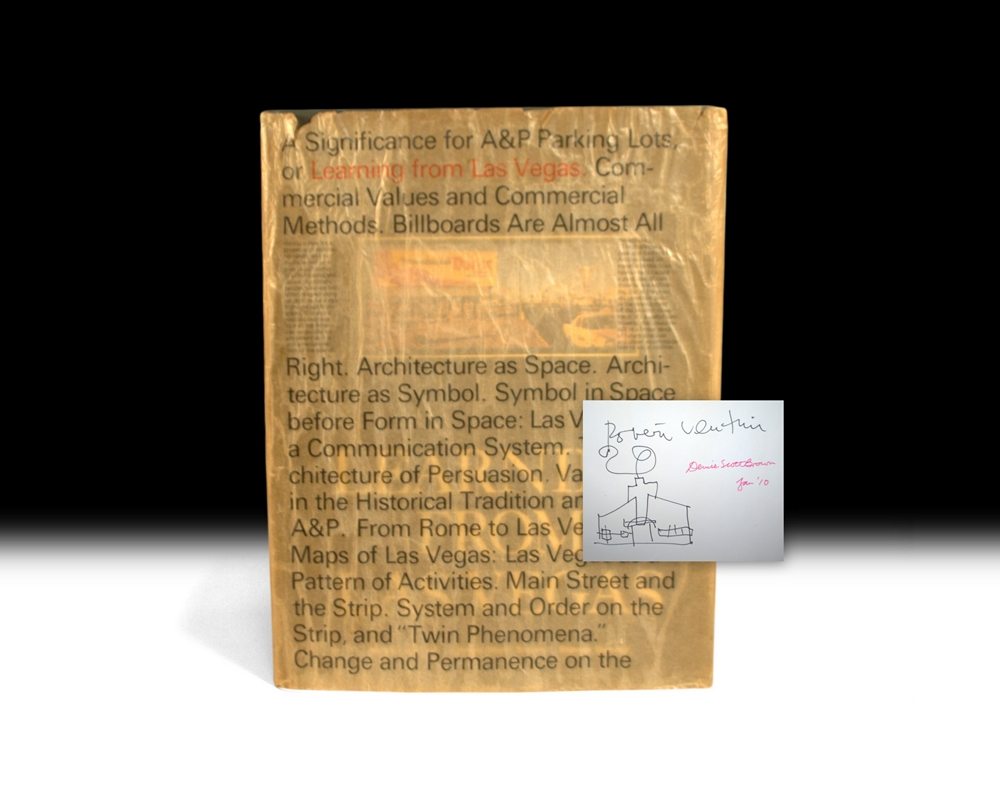 A Significance for A&P Parking Lots,
or Learning from Las Vegas. Com-
mercial Values and Commercial
Methods. Billboards Are Almost All
Right. Architecture as Space. Archi-
tecture as Symbol. Symbol in Space
before Form in Space: Las V
a Communication System.
chitecture of Persuasion. Va
in the Historical Tradition an
A&P. From Rome to Las Ve
Maps of Las Vegas: Las Veg
Pattern of Activities. Main Street and
the Strip. System and Order on the
Strip, and "Twin Phenomena."
Change and Permanence on the
Robert Venturi
Denise Scott Brown
Jan '10